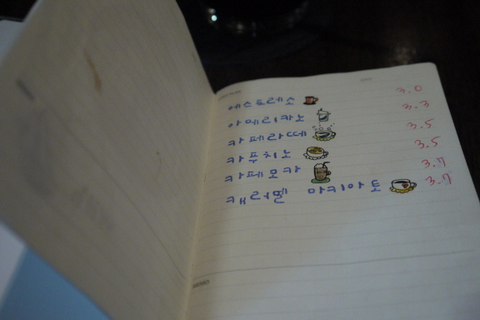 에스프레소 3.0
아메리카노 3.3
카페라떼 3.5
카푸치노 3.5
카페모카 3.7
캐라멜 마키아토 3.7
MEMO